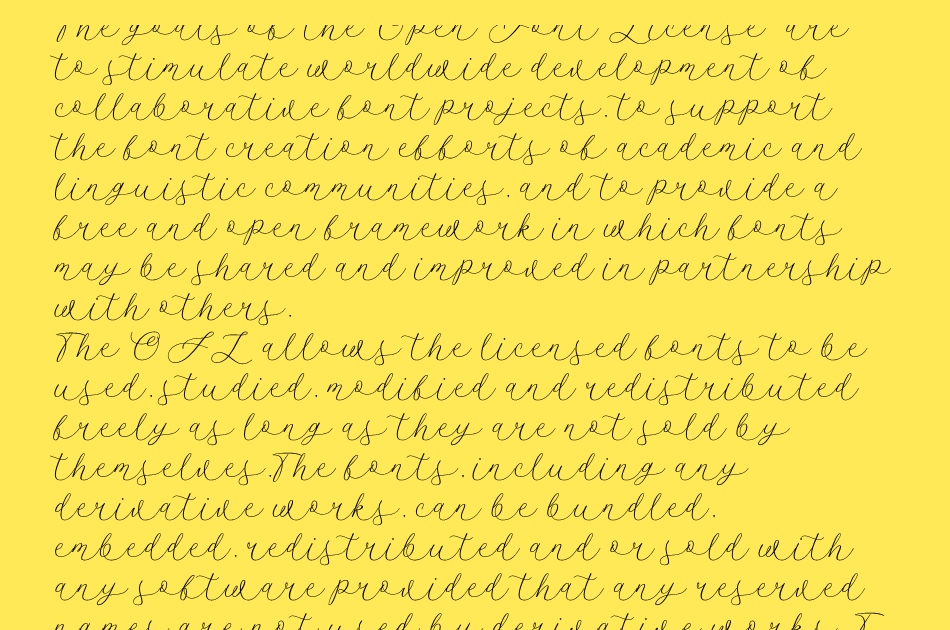 The goals of the Open Font License are
to stimulate worldwide development of
collaborative font projects.to support
the font creation efforts of academic and
linguistic communities.and to provide a
free and open framework in which fonts
may be shared and improved in partnership
with others.
The OFL allows the licensed fonts to be
used.studied.modified and redistributed
freely as long as they are not sold by
themselves.The fonts.including any
derivative works.can be bundled.
embedded.redistributed and or sold with
any software provided that any reserved
names are not used by derivative works. T